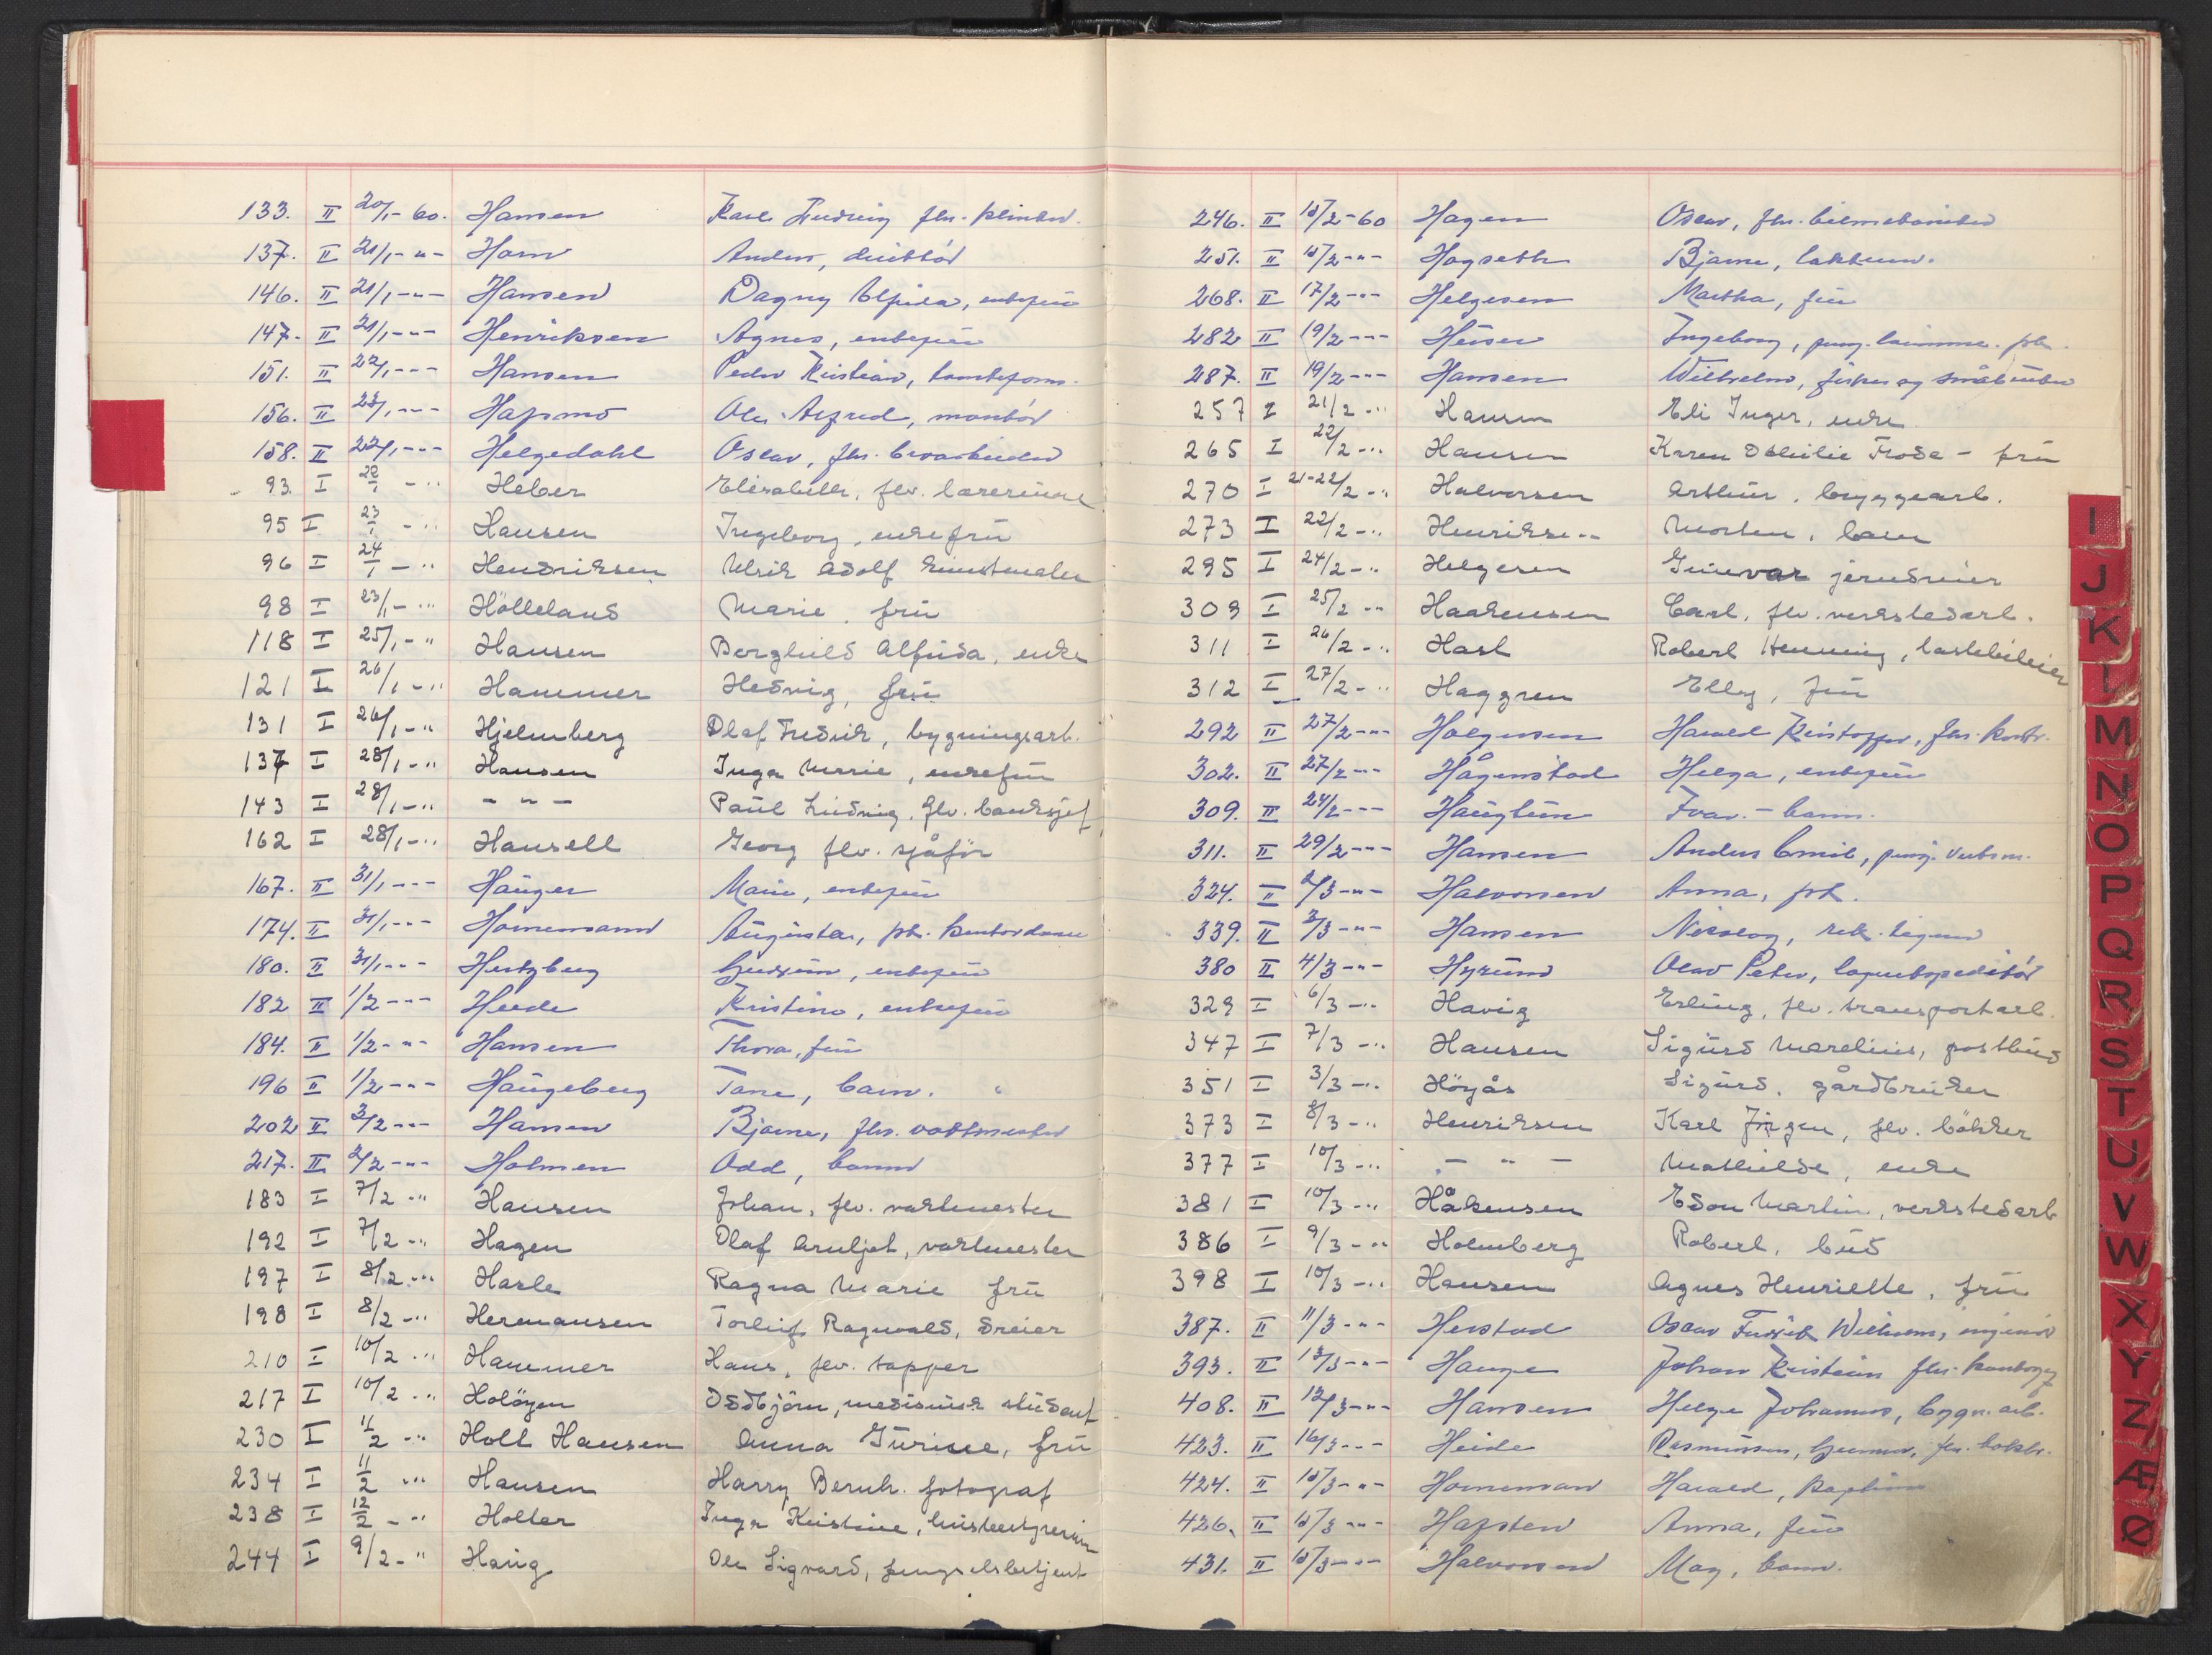 133. II 20/1-60. Hansen Karl Ludvig fhv.
137. II 21/1-"- Horn Anders,
146. II 21/1-"- Hansen Dagny Elfrida, enkefru
147. II 21/1-"- Henriksen Agnes, enkefru
151. II 22/1-"- Hansen Peder Kristian,
156. II 23/1-"- Hafsmo Ole Alfred, montör
158. II 22/1-"- Helgedahl Oskar, fhv.
93. I 22/1 -" Heber Elisabeth, fhv. lærerinne
95 I 23/1 -" Hansen Ingeborg, enkefru
96 I 24/1 -" Hendriksen Ulrik Adolf kunstmaler
98 I 23/1 -" Hölleland Marie, frü
118 I 25/1 -" Hansen Borghild Alfrida, enke
121 I 26/1 -" Hammer Hedvig, frü
131 I 26/1 -" Hjelmberg Olaf Fredrik, bygningsarb.
137 I 28/1 -" Hansen Inga Marie, enkefrü
143 I 28/1 -" - " - Paul Ludvig, fhv. banksjef
162 I 28/1 -" Hansell Georg fhv. sjåför
167. II 31/1-"- Hauger Marie, enkefru
174. II 31/1-"- Hornemann Augusta, frk. kontordame
180. II 31/1-"- Hertzberg Gudrun, enkefru
182 II 1/2-"- Heede Kristine, enkefru
184. II 1/2-"- Hansen Thora, fru
196 II 1/2-"- Haugeberg Tone, barn.
202 II 3/2-"- Hansen Bjarne, fhv. vaktmester
217. II 2/2-"- Holmen Odd, barn
183 I 7/2 -" Hansen Johan, fhv. vaktmester
192 I 7/2 -" Hagen Olaf Arnljot, vaktmester
197 I 8/2 -" Hasle Ragna Marie frü
198 I 8/2 -" Hermansen Torleif Ragnvald, dreier
210 I 10/2 -" Hammer Hans, fhv. tapper
217 I 10/2 -" Holöyen Oddbjörn, medisinsk student
230 I 11/2 -" Holt Hansen Anna Gurine, frü
234 I 11/2 -" Hansen Harry Bernh. fotograf
238 I 12/2 -" Holter Inga Kristine,
244 I 9/2 -" Haug Ole Sigvard, fengselsbetjent
246. II 15/2-60 Hagen Oskar, fhv.
251. II 15/2-"- Hagseth Bjarne,
268. II 17/2-"- Helgesen Martha, fru
282 II 19/2-"- Ingeborg,
287. II 19/2-"- Hansen Wilhelm, fisker og småbruker
257 I 21/2 -" Hansen Eli Inger, enke
265 I 22/2 -" Hansen Karen Othilie Froda - frü
270 I 21-22/2 -" Halvorsen Arthur, bryggearb.
273 I 22/2 -" Henriksen Morten, barn
295 I 24/2 -" Helgesen Gunvar jerndreier
309 I 25/2 -" Haakensen Carl, fhv. verkstedarb.
311 I 26/2 -" Hasl Robert Henning, lastebileier
312 I 27/2 -" Haggren Elly, frü
292 II 27/2-"- Halgunsen Harald Kristoffer, fhv.
302. II 27/2-"- Hågenstad Helga, enkefru
309. II 24/2-"- Hauglum Ivar - barn.
311. II 29/2-"- Hansen Anders Emil,
324. II 2/3-"- Halvorsen Anna, frk.
339. II 3/3-"- Hansen Nikolay,
380 II 4/3-"- Olav Peter, lagerekspeditör
329 I 6/3 -" Havig Erling, fhv. transportarb.
347 I 7/3 -" Hansen Sigurd Marelius, postbud
351 I 3/3 -" Höyås Sigurd, gårdbruker
373 I 8/3 -" Henriksen Karl Jörgen, fhv. bökker
377 I 10/3 -" - " - Mathilde, enke
381 I 10/3 -" Håkensen Edon Martin, verkstedarb
386 I 9/3 -" Holmberg Robert, bud
398 I 10/3 -" Hansen Agnes Henriette, frü
387. II 11/3-"- Herstad Oscar Fredrik Wilhelm, ingeniör
393. II 13/3-"- Hauge Johan Kristian fhv.
408. II 12/3-"- Hansen Helge Johannes, bygn. arb.
423. II 16/3-"- Heide Rasmussen, Gunnar, fhv.
424. II 15/3-"- Hornemann Harald, kaptein
426. II 15/3-"- Hafsten Anna, fru
431. II 15/3-"- Halvorsen May, barn.
I
J
K
L
M
N
O
P
Q
R
S
T
U
V
W
X
Y
Z
Æ
Ø